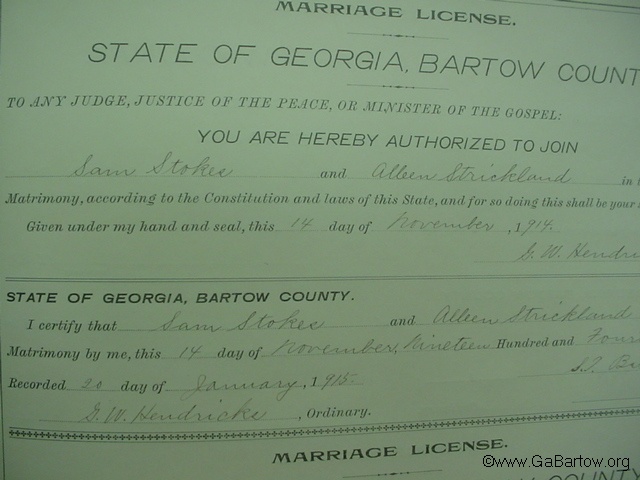 MARRIAGE LICENSE.
STATE OF GEORGIA, BARTOW COUNT
TO ANY JUDGE, JUSTICE OF THE PEACE, OR MINISTER OF THE GOSPEL:
YOU ARE HEREBY AUTHORIZED TO JOIN
Sam Stokes and Alleen Strickland in
Matrimony, according to the Constitution and laws of this State, and for so doing this shall be your
Given under my hand and seal, this 14 day of November, 1914.
G. W. Hendri
STATE OF GEORGIA, BARTOW COUNTY.
I certify that Sam Stokes and Alleen Strickland
Matrimony by me, this 14 day of November, Nineteen Hundred and Four
S.T.
Recorded 20 day of January, 1915.
G. W. Hendricks, Ordinary.
MARRIAGE LICENSE.
©www.GaBartow.org